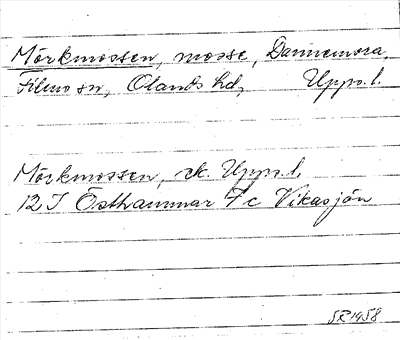 Mörkmossen, mosse, Dannemora,
Filmo sn, Olands hd, Upps. l.
Mörkmossen, ek. Upps. l.
12 I Östhammar 7 c Vikasjön
SR 1958